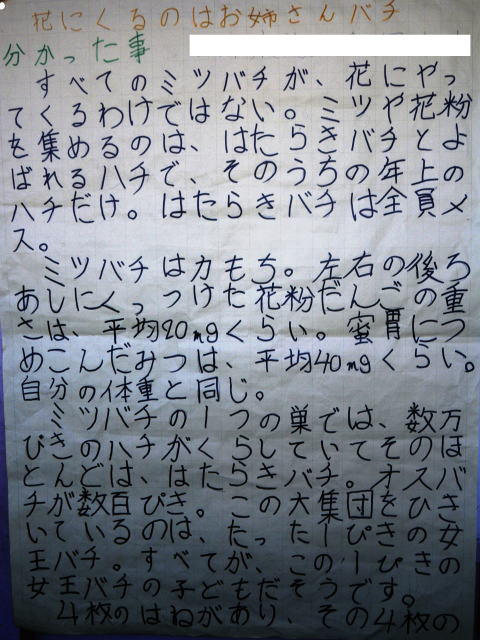 花にくるのはお姉さんバチ
分かった事
すべてのミツバチが、花にやっ
てくるわけではない。ミツや花粉
を集めるのは、はたらきバチとよ
ばれるハチで、そのうちの年上の
ハチだけ。はたらきバチは全員メ
ス。
ミツバチは力もち。左右の後ろ
あしにくっつけた花粉だんごの重
さは、平均20mgくらい。蜜胃につ
めこんだみつは、平均40mgくらい。
自分の体重と同じ。
ミツバチの1つの巣では、数万
びきのハチがくらしていてそのほ
とんどは、はたらきバチ。オスバ
チが数百ぴき。この大集団をひき
いているのは、たった一ぴきの女
王バチ。すべてが、この一ぴきの
女王バチの子どもだそうです。
4枚のはねがあり、その4枚の